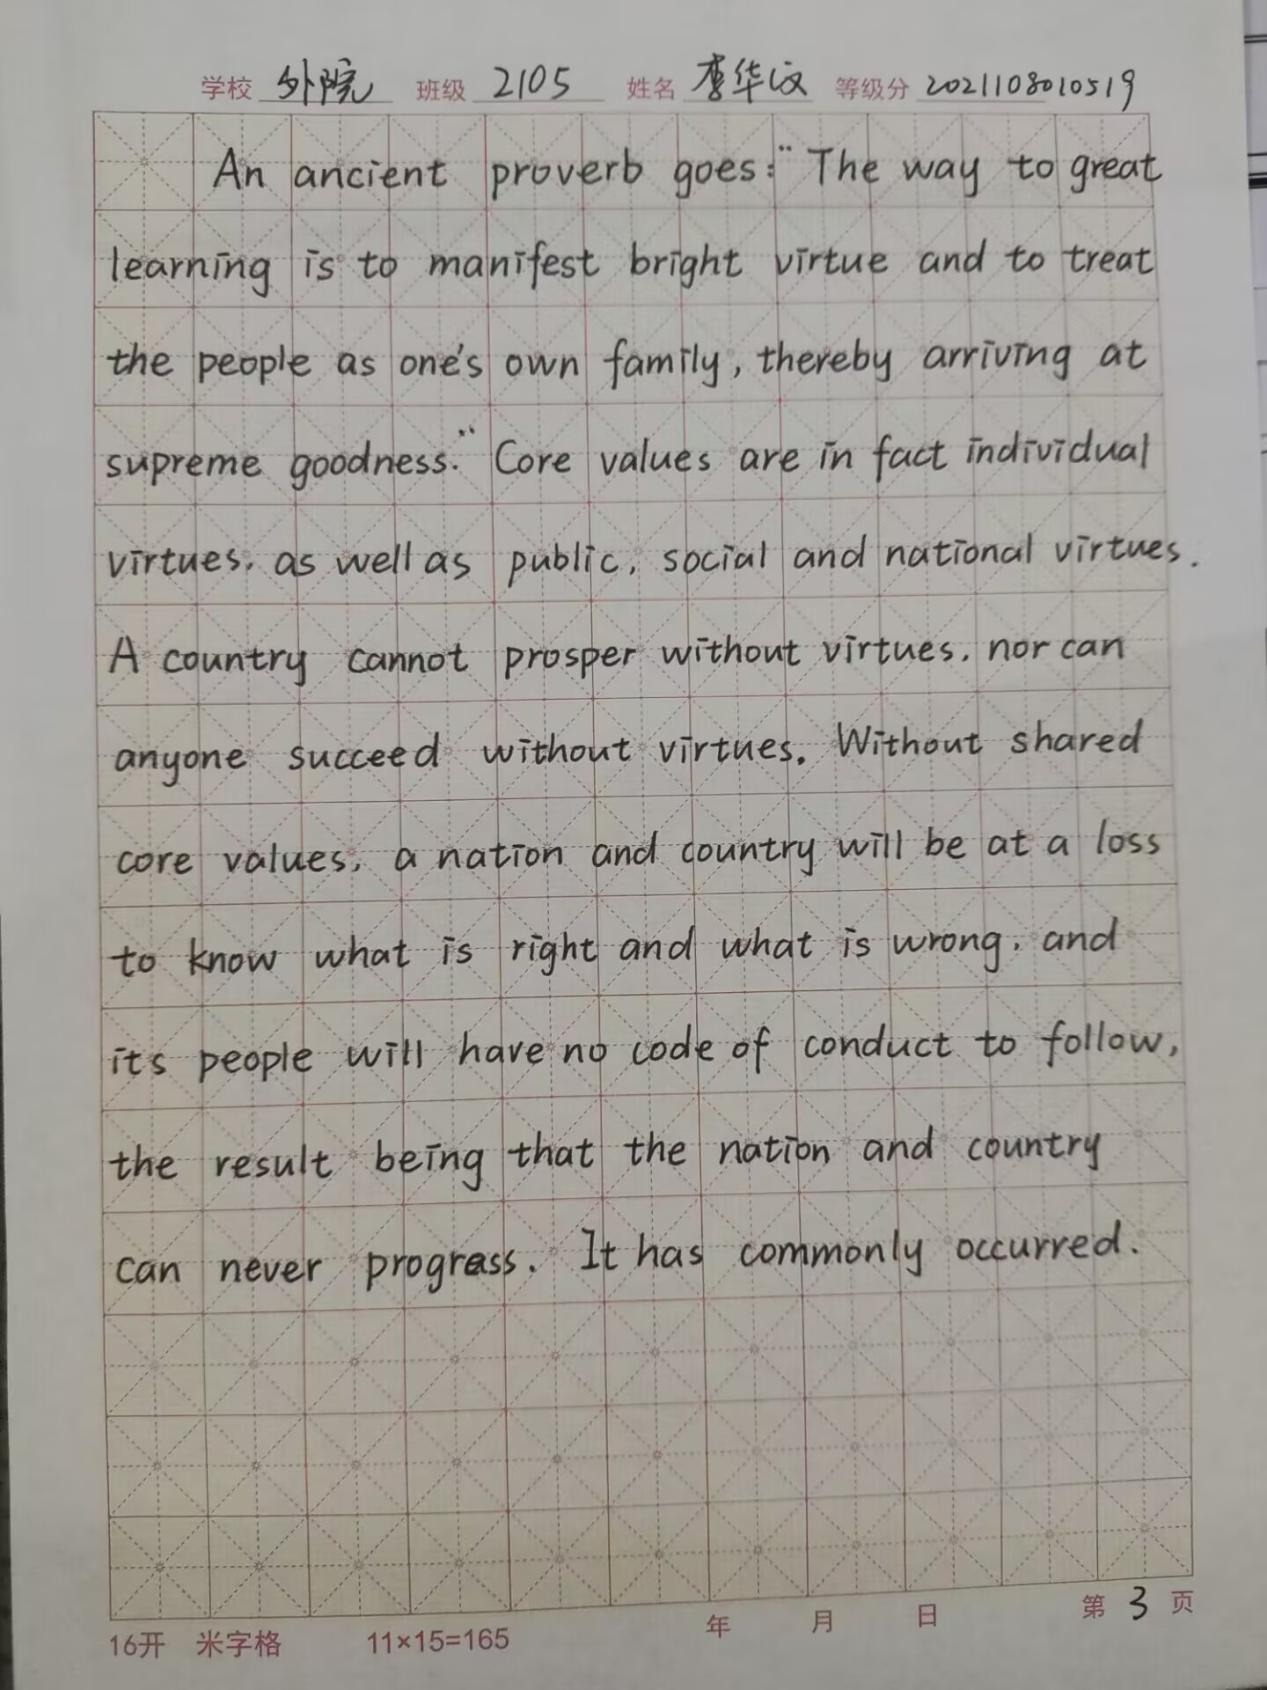 学校 外院 班级 2105 姓名 李华汶 等级分 2021108010519
An ancient proverb goes: "The way to great
learning is to manifest bright virtue and to treat
the people as one's own family, thereby arriving at
supreme goodness." Core values are in fact individual
virtues, as well as public, social and national virtues.
A country cannot prosper without virtues, nor can
anyone succeed without virtues. Without shared
core values, a nation and country will be at a loss
to know what is right and what is wrong, and
its people will have no code of conduct to follow,
the result being that the nation and country
can never progress. It has commonly occurred.
年 月 日 第 3 页
16开 米字格 11×15=165